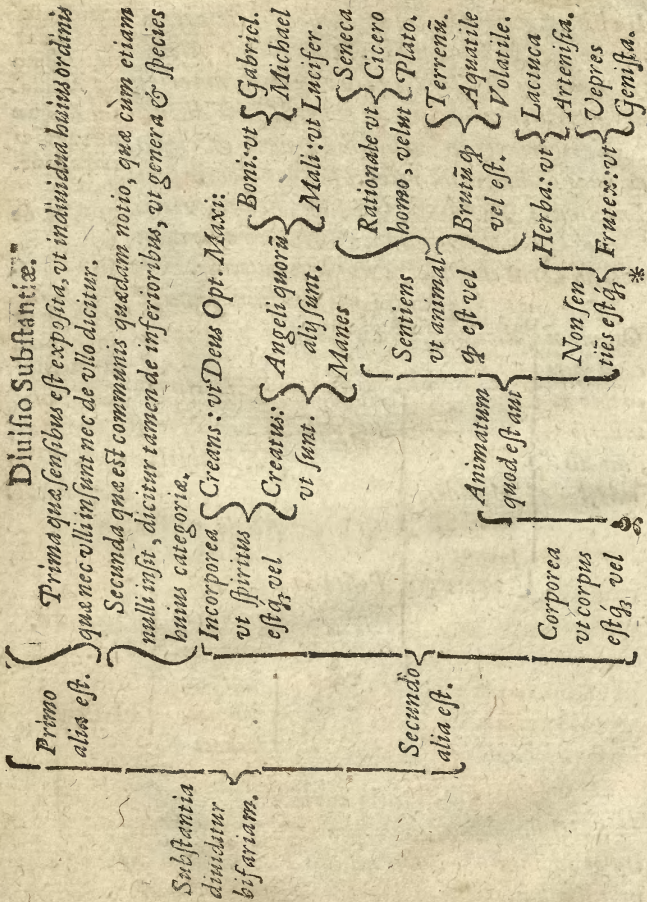 Diuiſio Subſtantiæ.
Subſtantia
diuiditur
bifariam.
Primo
alia eſt.
Prima quæ ſenſibus eſt expoſita, vt indiuidua huius ordinis
quæ nec vlli inſunt nec de vllo dicitur.
Secunda quæ est communis quædam notio, quæ cùm etiam
nulli inſit, dicitur tamen de inferioribus, vt genera & ſpecies
huius categoriæ.
Secundò
alia eſt.
Incorporea
vt ſpiritus
eſtq́ꝫ vel
Creans: vt Deus Opt. Maxi:
Creatus:
vt ſunt.
Angeli quorū
alij ſunt.
Boni: vt
Gabriel.
Michael
Mali: vt Lucifer.
Manes
Corporea
vt corpus
eſtq́ꝫ vel
Animatum
quod eſt aut
Sentiens
vt animal
ꝙ eſt vel
Rationale vt
homo, velut
Seneca
Cicero
Plato.
Brutū ꝙ
vel eſt.
Terrenū.
Aquatile
Volatile.
Non ſen
tiēs eſtq́ꝫ
Herba: vt
Lactuca
Arteniſia.
Frutex: vt
Vepres
Geniſta.
*